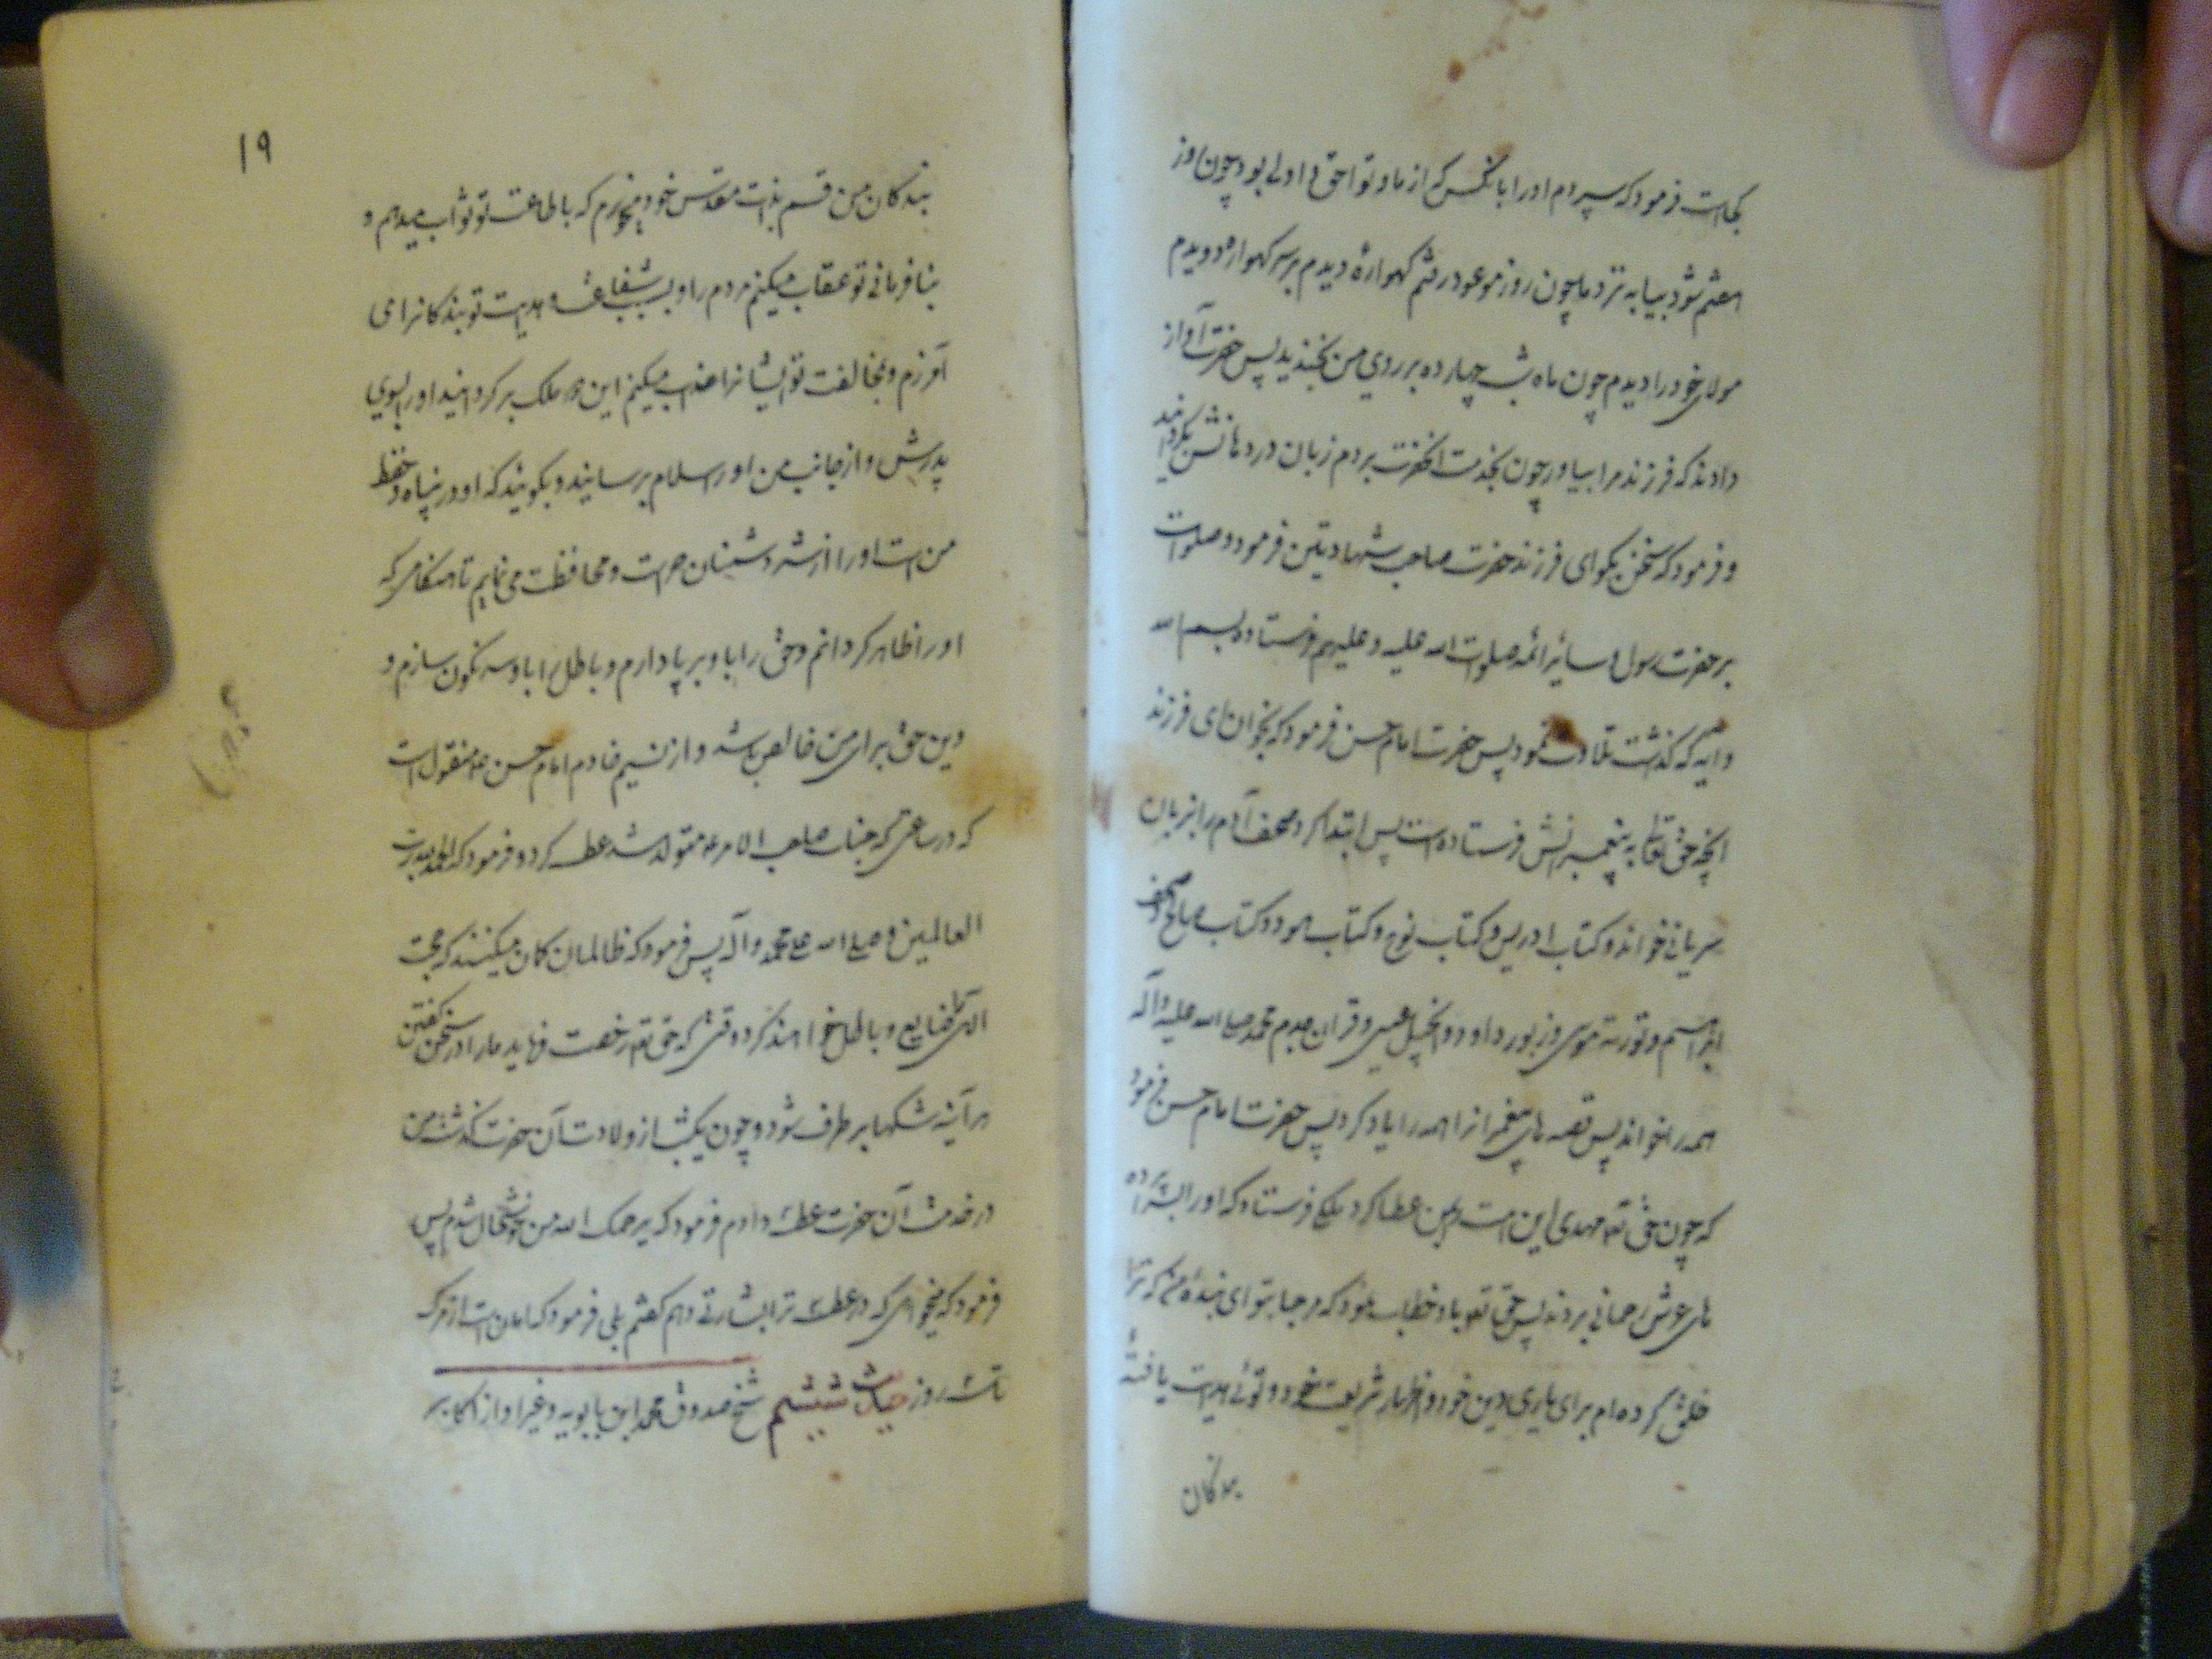 کجاست فرمود که سپردم او را بانکس که از ما و تو احق و اولی بود چون روز
هفتم شود بیا به نزد ما چون روز موعود رفتم کهوارهٔ دیدم بر سر کهواره دویدم
مولای خود را دیدم چون ماه شب چهارده بر روی من بخندید پس حضرت آواز
دادند که فرزند مرا بیاور چون بخدمت انحضرت بردم زبان در دهانش بکردانید
و فرمود که سخن بکو ای فرزند حضرت صاحب شهادتین فرمود و صلوات
بر حضرت رسول و سائر ائمه صلوات الله علیه و علیهم فرستاد و بسم الله
و ایه که کذشت تلاوت نمود پس حضرت امام حسن فرمود که بخوان ای فرزند
انچه حق تعالی به پیغمبرانش فرستاده است پس ابتدا کرد صحف آدم را بزبان
سریانی خواند و کتاب ادریس و کتاب نوح و کتاب هود و کتاب صالح و صحف
ابراهیم و توریة موسی و زبور داود و انجیل عیسی و قران جدم محمد صلی الله علیه و آله
همه را خواند پس قصه های پیغمبرانرا همه را یاد کرد پس حضرت امام حسن فرمود
که چون حق تع مهدی این امت را بمن عطا کرد ملکی فرستاد که او را بسراپرده
های عرش رحمانی بردند پس حق تع باو خطاب نمود که مرحبا بتو ای بندهٔ من که ترا
خلق کرده ام برای یاری دین خود و اظهار شریعت خود و توئی هدایت یافتهٔ
بندکان
۱۹
بندکان من قسم بذات مقدس خود میخورم که باطاعت تو ثواب میدهم و
بنافرمانی تو عقاب میکنم مردم را و بسبب شفاعت و هدایت تو بندکانرا می
آمرزم و بمخالفت تو ایشانرا عذاب میکنم این دو ملک برکردانید او را بسوی
پدرش و از جانب من او را سلام برسانید و بکوئید که او در پناه و حفظ
من است او را از شر دشمنان حراست و محافظت می نمایم تا هنکامی که
او را ظاهر کردانم و حق را باو بر پا دارم و باطل را باو سرنکون سازم و
دین حق برای من خالص باشد و از نسیم خادم امام حسن ع منقول است
که در ساعتی که جناب صاحب الامر ع متولد شد عطسه کرد و فرمود که الحمد لله رب
العالمین و صلی الله علی محمد و آله پس فرمود که ظالمان کان میکنند که حجت
الهی ضایع و باطل خواهند کرد وقتی که حق تع رخصت فرماید ما را در سخن کفتن
هر آینه شکها بر طرف شود و چون یکشب از ولادت آن حضرت کذشت من
در خدمت آن حضرت عطسه دادم فرمود که یرحمک الله من خوشحال شدم پس
فرمود که میخواهی که در عطسه ترا بشارتی دهم کفتم بلی فرمود که امان است از مرک
تا سه روز حدیث ششم شیخ صدوق محمد ابن بابویه و غیر او از اکابر